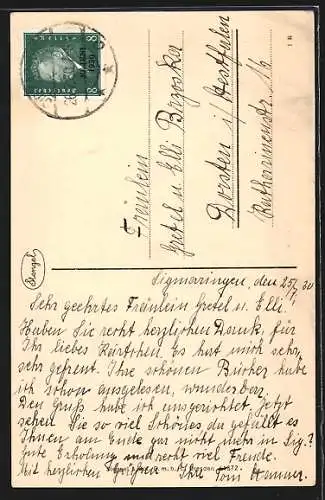 Fräulein
Gretel u. Elli Brzoska
Dorsten i/ Westfalen
Katharinenstr. 16
Stengel
Sigmaringen, den 25/7. 30
Sehr geehrtes Fräulein Gretel u. Elli!
Haben Sie recht herzlichen Dank, für
Ihr liebes Kärtchen. Es hat mich sehr,
sehr gefreut. Ihre schönen Bücher habe
ich schon ausgelesen, wunderbar.
Den Gruß habe ich ausgerichtet. Jetzt
sehen Sie so viel Schönes da gefällt es
Ihnen am Ende gar nicht mehr in Sig.?
Gute Erholung und recht viel Freude.
Mit herzlichen Grüßen Ihr Toni